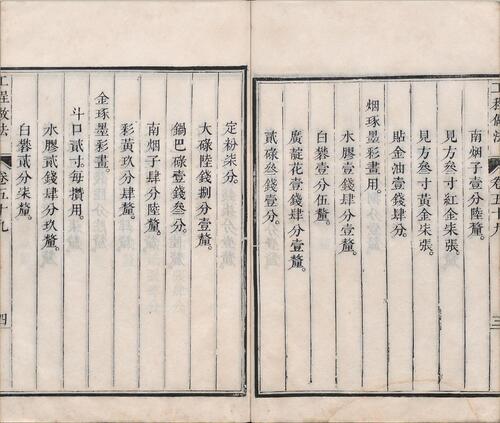 工程做法 卷五十九 三
南烟子壹分陸釐。
見方叁寸紅金柒張。
見方叁寸黃金柒張。
貼金油壹錢肆分。
烟琢墨彩畫用。
水膠壹錢肆分壹釐。
白礬壹分伍釐。
廣靛花壹錢肆分壹釐。
貳碌叁錢壹分。
定粉柒分。
大碌陸錢捌分壹釐。
鍋巴碌壹錢叁分。
南烟子肆分陸釐。
彩黃玖分肆釐。
金琢墨彩畫。
斗口貳寸每攢用。
水膠貳錢肆分玖釐。
白礬貳分柒釐。
工程做法 卷五十九 四